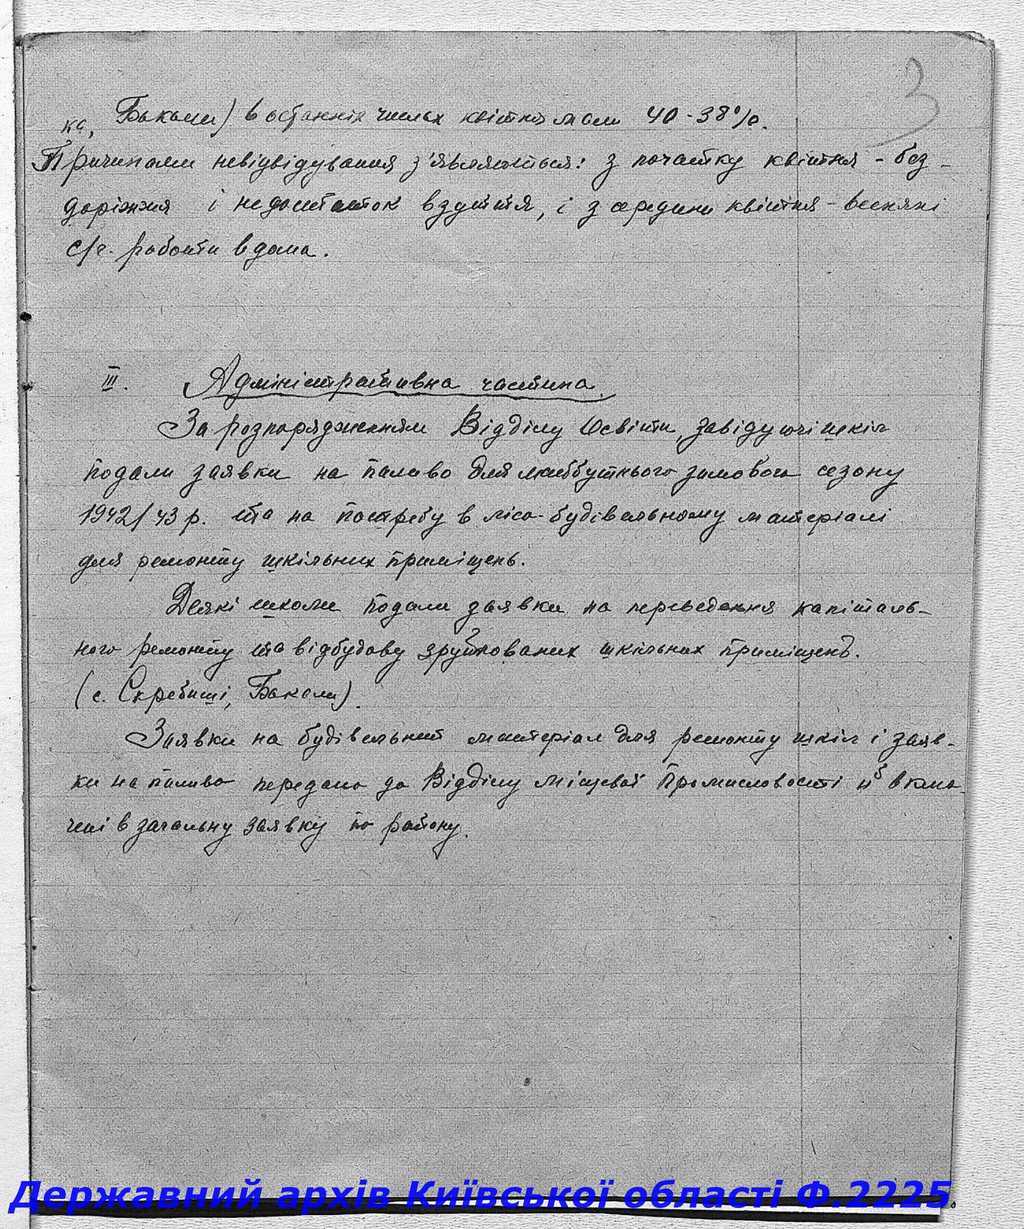 3
ка, Бакали) в останніх числах квітня мали 40-38%.
Причинами невідвідування з'являються: з початку квітня - без-
доріжжя і недостаток взуття, і з середини квітня - весняні
с/г. роботи вдома.
III. Адміністративна частина.
За розпорядженням Відділу Освіти завідуючі шкіл
подали заявки на паливо для майбутнього зимового сезону
1942/43 р. та на потребу в лісо-будівельному матеріалі
для ремонту шкільних приміщень.
Деякі школи подали заявки на переведення капіталь-
ного ремонту та відбудову зруйнованих шкільних приміщень.
(с. Скребиші, Бакали).
Заявки на будівельний матеріал для ремонту шкіл і заяв-
ки на паливо передано до Відділу Місцевої Промисловості
чені в загальну заявку по району.
Державний архів Київської області Ф.2225